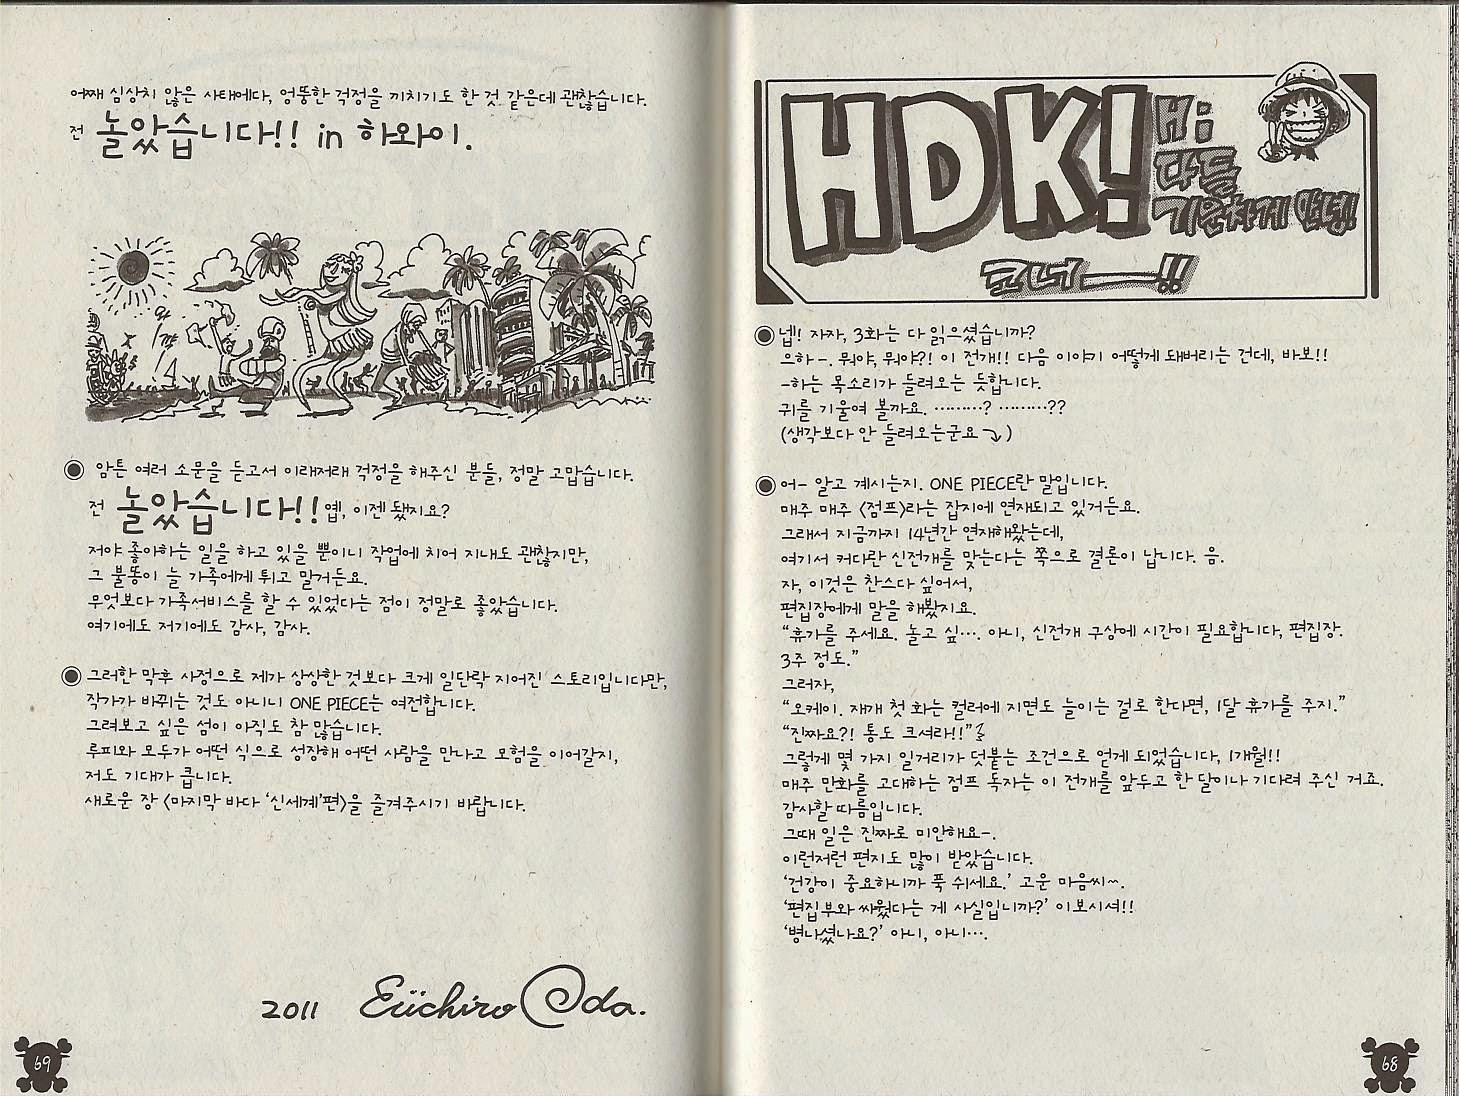 HDK!
Hi
다들
기운차게 안녕!
코너ㅡ!!
넵! 자자, 3화는 다 읽으셨습니까?
으하-. 뭐야, 뭐야?! 이 전개!! 다음 이야기 어떻게 돼버리는 건데, 바보!!
-하는 목소리가 들려오는 듯합니다.
귀를 기울여 볼까요. ………? ………??
(생각보다 안 들려오는군요⤵)
어- 알고 계시는지. ONE PIECE란 말입니다.
매주 매주 〈점프〉라는 잡지에 연재되고 있거든요.
그래서 지금까지 14년간 연재해왔는데,
여기서 커다란 신전개를 맞는다는 쪽으로 결론이 납니다. 음.
자, 이것은 찬스다 싶어서,
편집장에게 말을 해봤지요.
“휴가를 주세요. 놀고 싶…. 아니, 신전개 구상에 시간이 필요합니다, 편집장.
3주 정도.”
그러자,
“오케이. 재개 첫 화는 컬러에 지면도 늘이는 걸로 한다면, 1달 휴가를 주지.”
“진짜요?! 통도 크셔라!!”
그렇게 몇 가지 일거리가 덧붙는 조건으로 얻게 되었습니다, 1개월!!
매주 만화를 고대하는 점프 독자는 이 전개를 앞두고 한 달이나 기다려 주신 거죠.
감사할 따름입니다.
그때 일은 진짜로 미안해요-.
이런저런 편지도 많이 받았습니다.
‘건강이 중요하니까 푹 쉬세요.’ 고운 마음씨~.
‘편집부와 싸웠다는 게 사실입니까?’ 이보시셔!!
‘병나셨나요?’ 아니, 아니….
68
어째 심상치 않은 사태에다, 엉뚱한 걱정을 끼치기도 한 것 같은데 괜찮습니다.
전 놀았습니다!! in 하와이.
암튼 여러 소문을 듣고서 이래저래 걱정을 해주신 분들, 정말 고맙습니다.
전 놀았습니다!! 옙!, 이젠 됐지요?
저야 좋아하는 일을 하고 있을 뿐이니 작업에 치어 지내도 괜찮지만,
그 불똥이 늘 가족에게 튀고 말거든요.
무엇보다 가족서비스를 할 수 있었다는 점이 정말로 좋았습니다.
여기에도 저기에도 감사, 감사.
그러한 막후 사정으로 제가 상상한 것보다 크게 일단락 지어진 스토리입니다만,
작가가 바뀌는 것도 아니니 ONE PIECE는 여전합니다.
그려보고 싶은 섬이 아직도 참 많습니다.
루피와 모두가 어떤 식으로 성장해 어떤 사람을 만나고 모험을 이어갈지,
저도 기대가 큽니다.
새로운 장 〈마지막 바다 ‘신세계’편〉을 즐겨주시기 바랍니다.
2011 Eiichiro Oda.
69